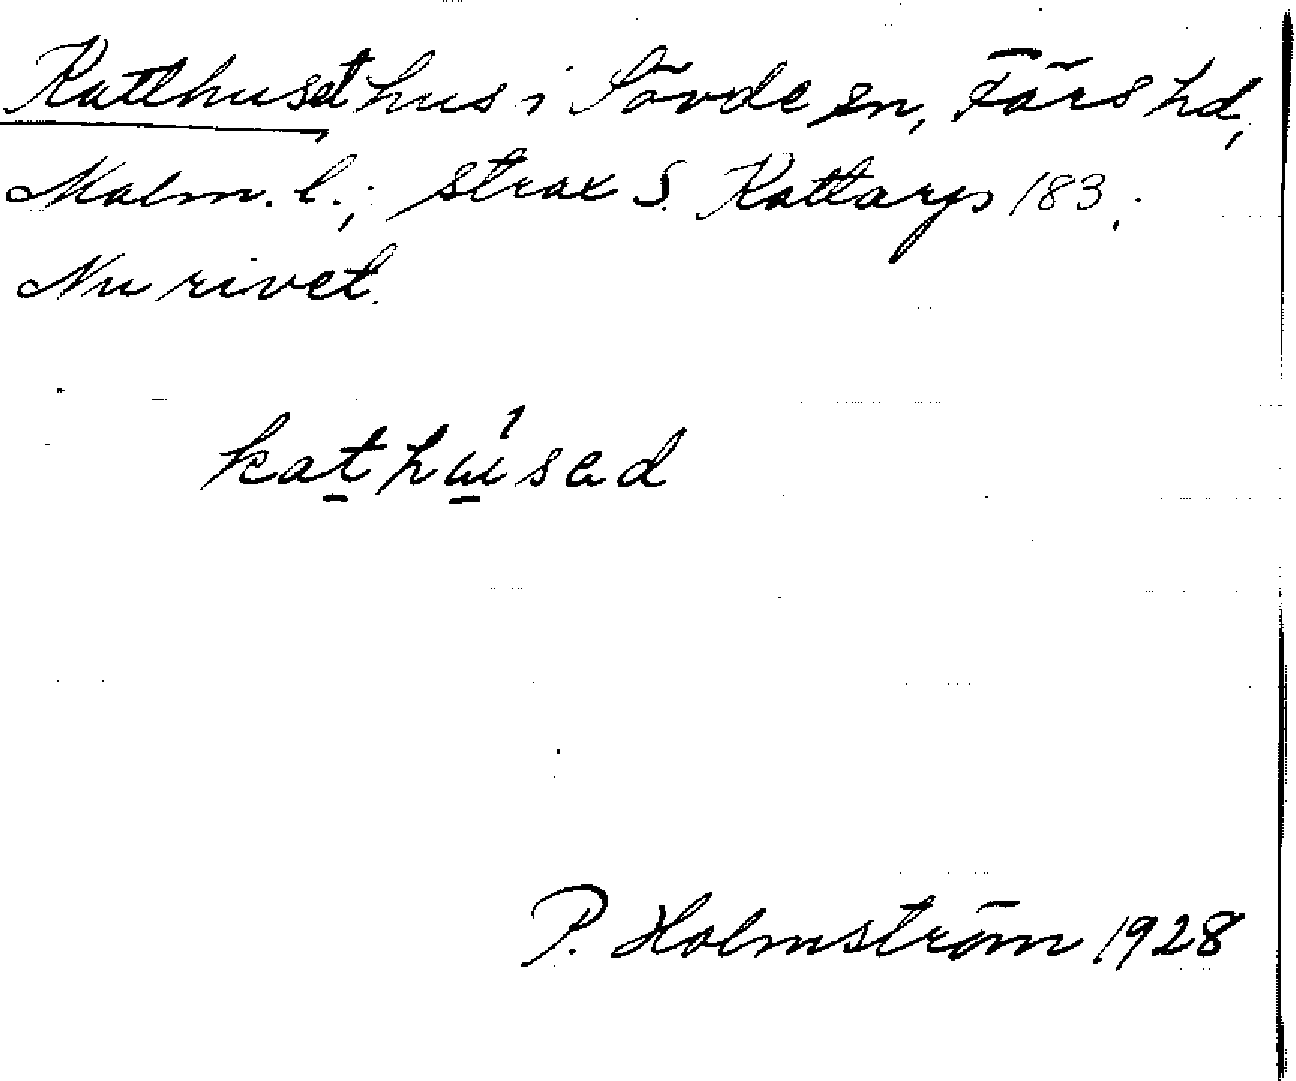 Katthuset hus i Sövde sn, Färs hd,
Malm. l.; strax S. Kattarp 183,
Nu rivet.
kathúsad
P. Holmström 1928